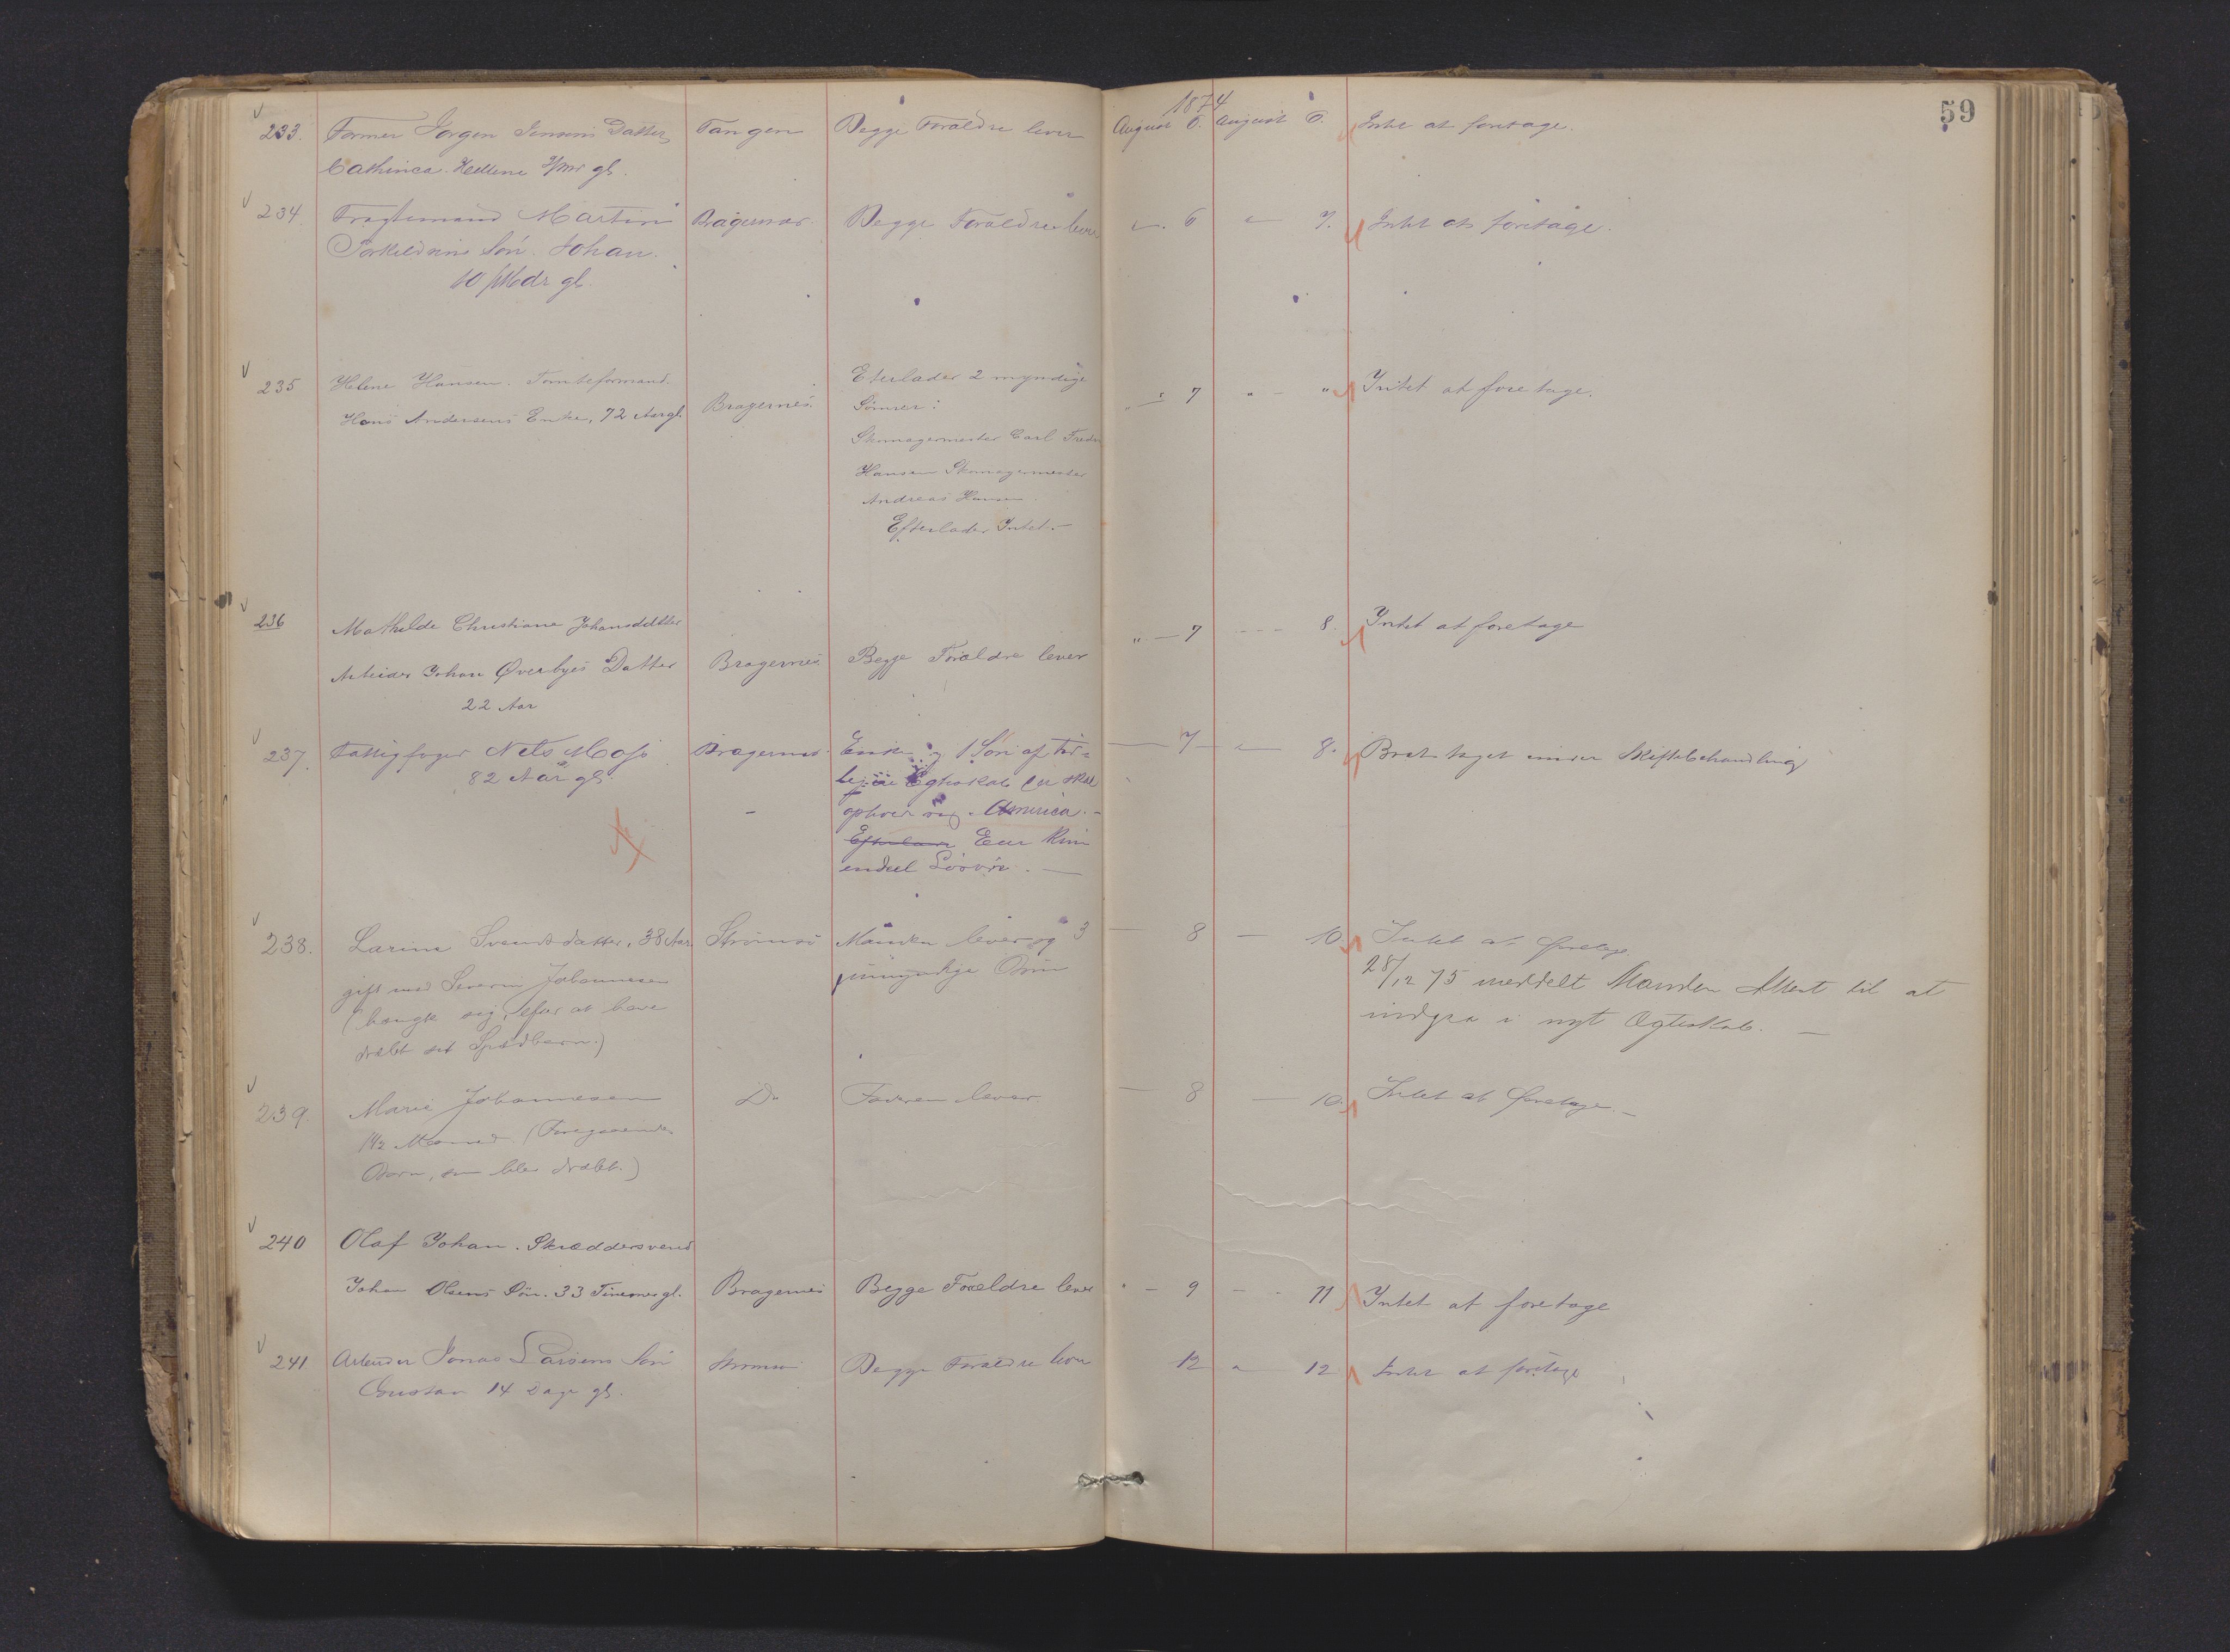 1874
59
233. Former Jørgen Jensens Datter Tangen Begge Forældre lever August 6. August 6. Intet at foretage.
Cathinca Hellene gl.
234. Fragtemand Martin Bragernæs. Begge Forældre lever 6 7. Intet at foretage.
Torkildsens Søn. Johan.
10 Mdr gl.
235 Helene Hansen. Tomteformand. Bragernes. Efterlader 2 myndige " 7 " " Intet at foretage.
Hans Andersens Enke, 72 Aar gl. Sønner:
Skomagermester Carl Fredr
Hansen Skomagermester
Andreas Hansen.
Efterlader Intet.
236 Mathilde Christiane Johansdatter " 7 8. Intet at foretage
Arbeider Johan Øverbyes Datter Bragernes. Begge Forældre lever
22 Aar
237. Fattigfoged Nels Moss Bragernes. Enke og 1 Søn af for- 7 8. under Skiftebehandling
82 Aar gl. Egteskab skal
opholde sig i America.
endeel Løsøre.
238. Larine Svendsdatter, 38 Aar Strømsø Manden lever og 3 8 10. Intet at foretage
gift med Severin Johannesen umyndige Børn 28/12 75 meddelt Manden Attest til at
(hængte sig, efter at have indgaa i nyt Ægteskab.
dræbt sit Spædbarn.)
239. Marie Johannesen Do Faderen lever. 8 10. Intet at foretage.
1½ Maaned (Foregaaendes
Barn, som blev dræbt.)
240 Olaf Johan. Skræddersvend
Johan Olsens Søn. 33 Timer gl. Bragernes Begge Forældre lever 9 11 Intet at foretage
241 Arbeider Jonas Larsens Søn Strømsø Begge Forældre lever 12 12 Intet at foretage
Gustav 14 Dage gl.